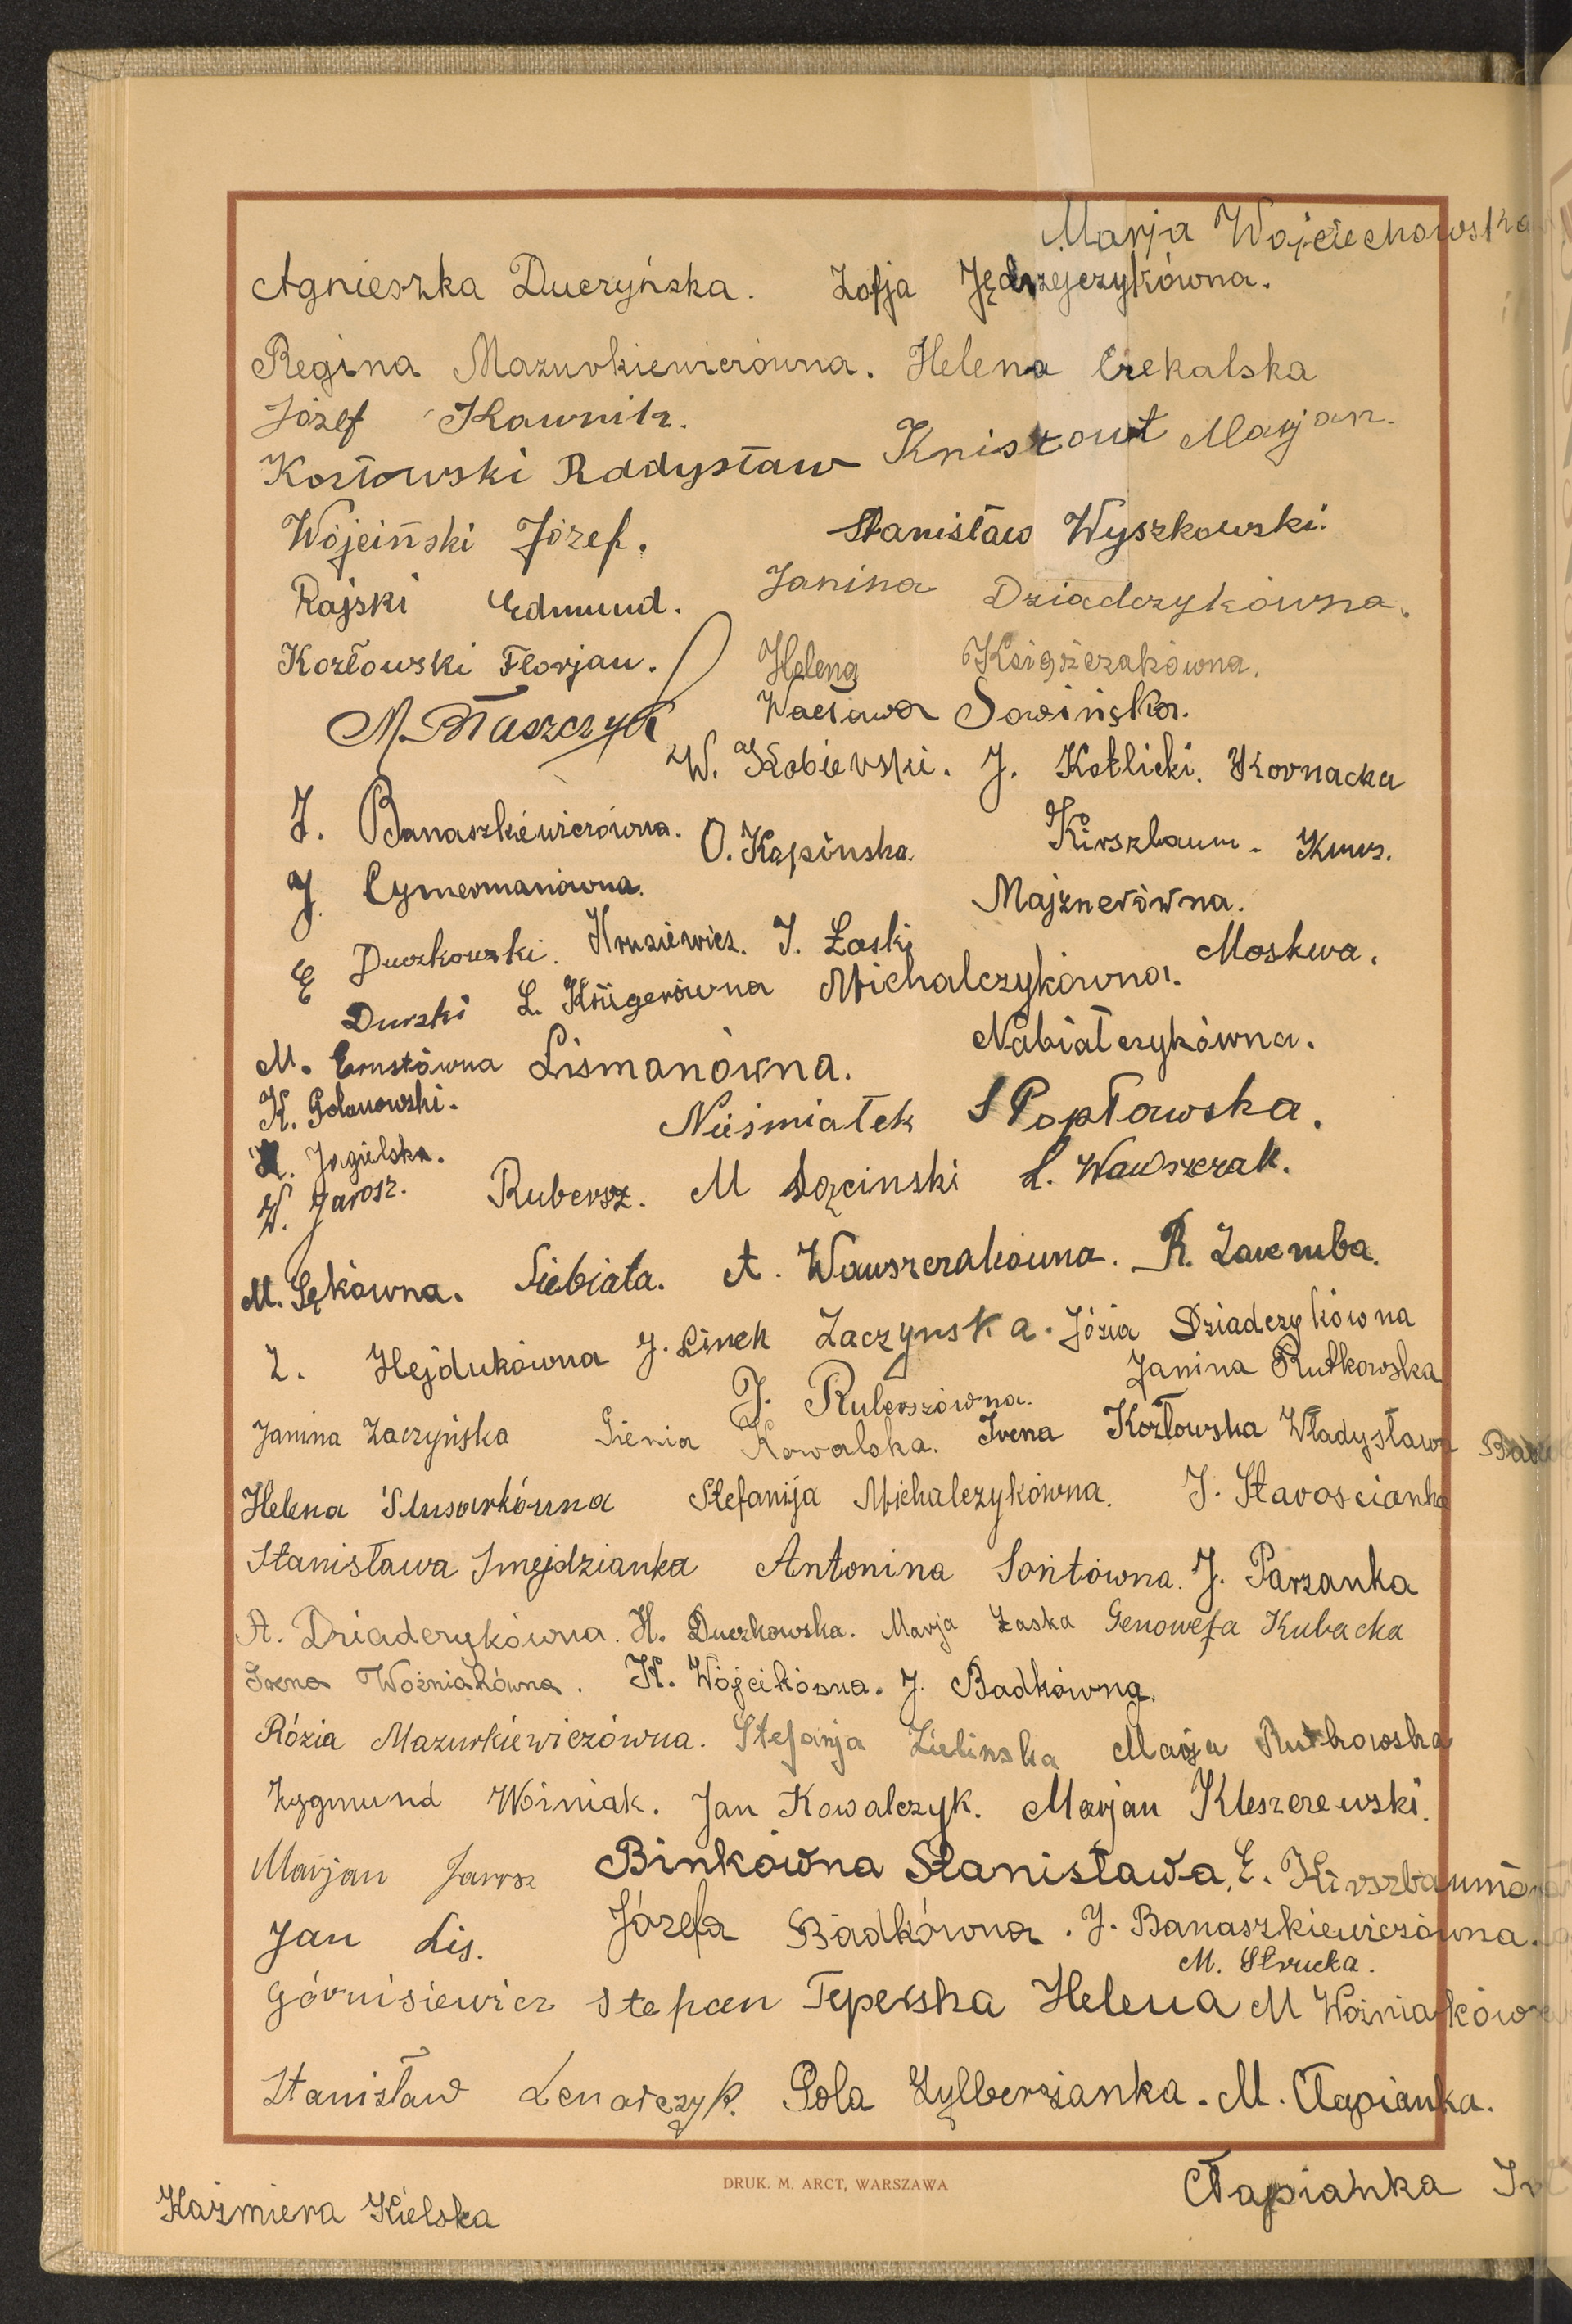 Marja Wojciechowska
Agnieszka Duczyńska. Zofja Jędrzejczykówna.
Regina Mazurkiewiczówna. Helena Czekalska
Józef Kawnik.
Kozłowski Raddysław Kniszowt Marjan.
Wójciński Józef. Stanisław Wyszkowski.
Rajski Edmund. Janina Dziadczykówna.
Kozłowski Florjan. Helena Księżczakówna.
M. Błaszczyk Wacława Sowińska.
W. Kobierski. J. Kotlicki. Kornacka
Z. Banaszkiewiczówna. O. Kapińska. Kirszbaum
J. Cymermanówna. Majznerówna.
E Duczkowski. Kruziewicz. J. Łaski Moskwa.
Durski L. Krügerówna Michalczykówna.
M. Ernstówna Lismanówna. Nabiałczykówna.
K. Golanowski.
Nieśmiałek S Popławska.
Jagielska.
W. Jarosz. Rubersz. M Łącinski L. Wawszczak.
M. Sękówna. Siebiata. A. Wawszczakówna. R. Zaremba.
Z. Hejdukówna J. Linek Zaczynska. Józia Dziadczykówna
J. Ruberszówna. Janina Rutkowska
Janina Zaczyńska Gienia Kowalska. Irena Kozłowska Władysława
Helena Ślusarkówna Stefanija Michalczykówna. J. Starościanka
Stanisława Smejdzianka Antonina Sońtówna. J. Parzanka
A. Dziadczykówna. H. Duczkowska. Marja Łaska Genowefa Kubacka
Irena Woźniakówna. K. Wójcikówna. J. Badkówna.
Rózia Mazurkiewiczówna. Stefanja Zielinska Marja Rutkowska
Zygmund Woźniak. Jan Kowalczyk. Marjan Kleszczewski.
Marjan Jarosz Binkówna Stanisława. E.
Jan Lis. Józefa Badkówna. J. Banaszkiewiczówna.
M. Strucka.
Górnisiewicz Stepan Teperska Helena M
Stanisław Lenarczyk. Pola Zylberżanka. M. Cłapianka.
DRUK. M. ARCT, WARSZAWA
Cłapianka
Kaźmiera Kielska